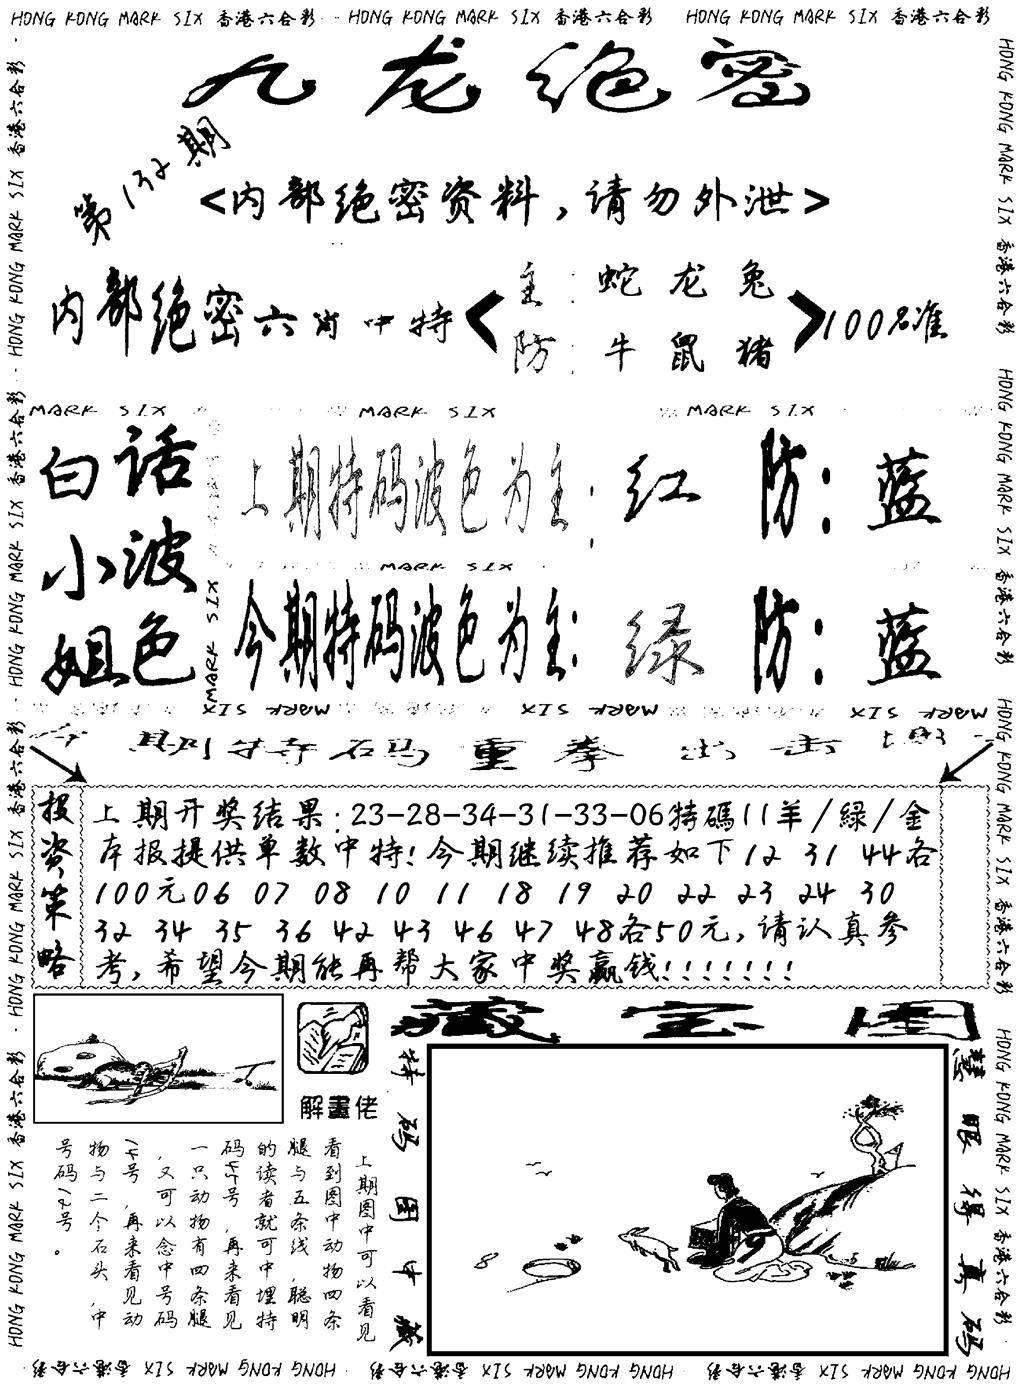 HONG KONG MARK SIX 香港六合彩 HONG KONG MARK SIX 香港六合彩 HONG KONG MARK SIX 香港六合彩
九龙绝密
第132期
<内部绝密资料,请勿外泄>
内部绝密六肖中特
主:蛇龙兔
防:牛鼠猪
100%准
MARK SIX MARK SIX MARK SIX
白话小波姐色
上期特码波色为主:红 防:蓝
MARK SIX
今期特码波色为主:绿 防:蓝
MARK SIX
MARK SIX MARK SIX MARK SIX
期特码重拳出击
投资策略
上期开奖结果:23-28-34-31-33-06特碼11羊/緑/金
本报提供单数中特!今期继续推荐如下12 31 44各
100元06 07 08 10 11 18 19 20 22 23 24 30
32 34 35 36 42 43 46 47 48各50元,请认真参
考,希望今期能再帮大家中奖赢钱!!!!!!!
解畫佬
藏宝图
特码图中藏
慧眼得真码
上期图中可以看见
看到图中动物四条
腿与五条线,聪明
的读者就可中埋特
码45号,再来看见
一只动物有四条腿
,又可以念中号码
14号,再来看见动
物与二个石头,中
号码12号。
HONG KONG MARK SIX 香港六合彩 HONG KONG MARK SIX 香港六合彩 HONG KONG MARK SIX 香港六合彩 HONG KONG MARK SIX 香港六合彩
HONG KONG MARK SIX 香港六合彩 HONG KONG MARK SIX 香港六合彩 HONG KONG MARK SIX 香港六合彩 HONG KONG MARK SIX 香港六合彩
HONG KONG MARK SIX 香港六合彩 HONG KONG MARK SIX 香港六合彩 HONG KONG MARK SIX 香港六合彩